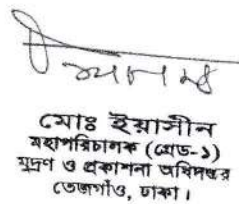 মোঃ ইয়াসীন
মহাপরিচালক (গ্রেড-১)
মুদ্রণ ও প্রকাশনা অধিদপ্তর
তেজগাঁও, ঢাকা।